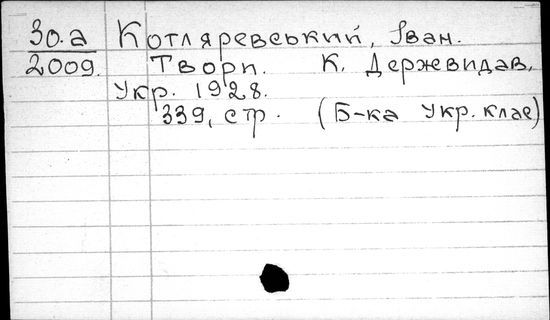 30.а Котляревський, Іван.
2009. Твори. К. Державидав.
Укр. 1928.
339, стр. (Б-ка Укр. клас)